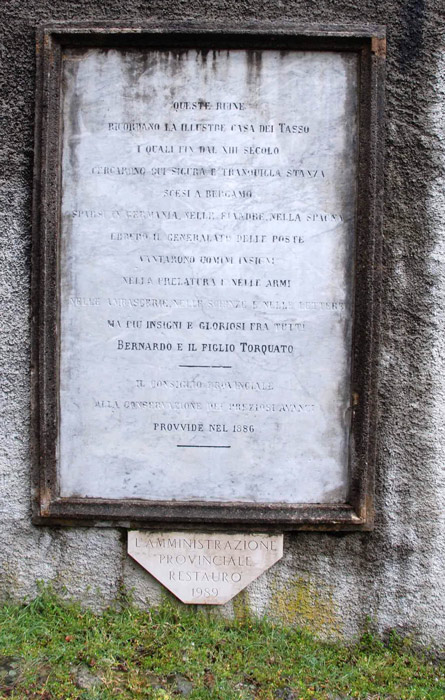 QUESTE RUINE
RICORDANO LA ILLUSTRE CASA DEI TASSO
I QUALI FIN DAL XIII SECOLO
CERCARONO QUI SICURA E TRANQUILLA STANZA
SCESI A BERGAMO
SPARSI IN GERMANIA, NELLE FIANDRE, NELLA SPAGNA
EBBERO IL GENERALATO DELLE POSTE
VANTARONO UOMINI INSIGNI
NELLA PRELATURA E NELLE ARMI
NELLE AMBASCERIE, NELLE SCIENZE E NELLE LETTERE
MA PIÙ INSIGNI E GLORIOSI FRA TUTTI
BERNARDO E IL FIGLIO TORQUATO
IL CONSIGLIO PROVINCIALE
ALLA CONSERVAZIONE DEI PREZIOSI AVANZI
PROVVIDE NEL 1886
L'AMMINISTRAZIONE
PROVINCIALE
RESTAURO
1989